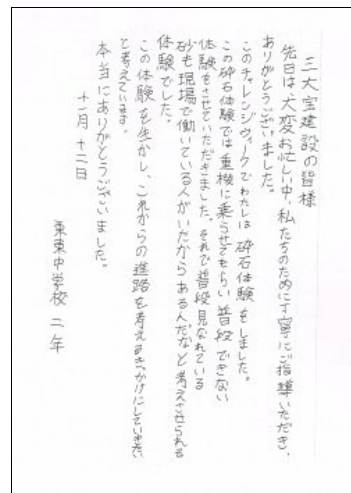 三大宝建設の皆様
先日は、大変お忙しい中、私たちのために丁寧にご指導いただき、
ありがとうございました。
このチャレンジウィークでわたしは砕石体験をしました。
この砕石体験では重機に乗らせてもらい普段できない
体験をさせていただきました。それで普段見なれている
砂も現場で働いている人がいだからあるんだなと考えさせられる
体験でした。
この体験を生かし、これからの進路を考えるきっかけにしていきたい
と考えています。
本当にありがとうございました。
十一月十二日
栗東中学校 二年